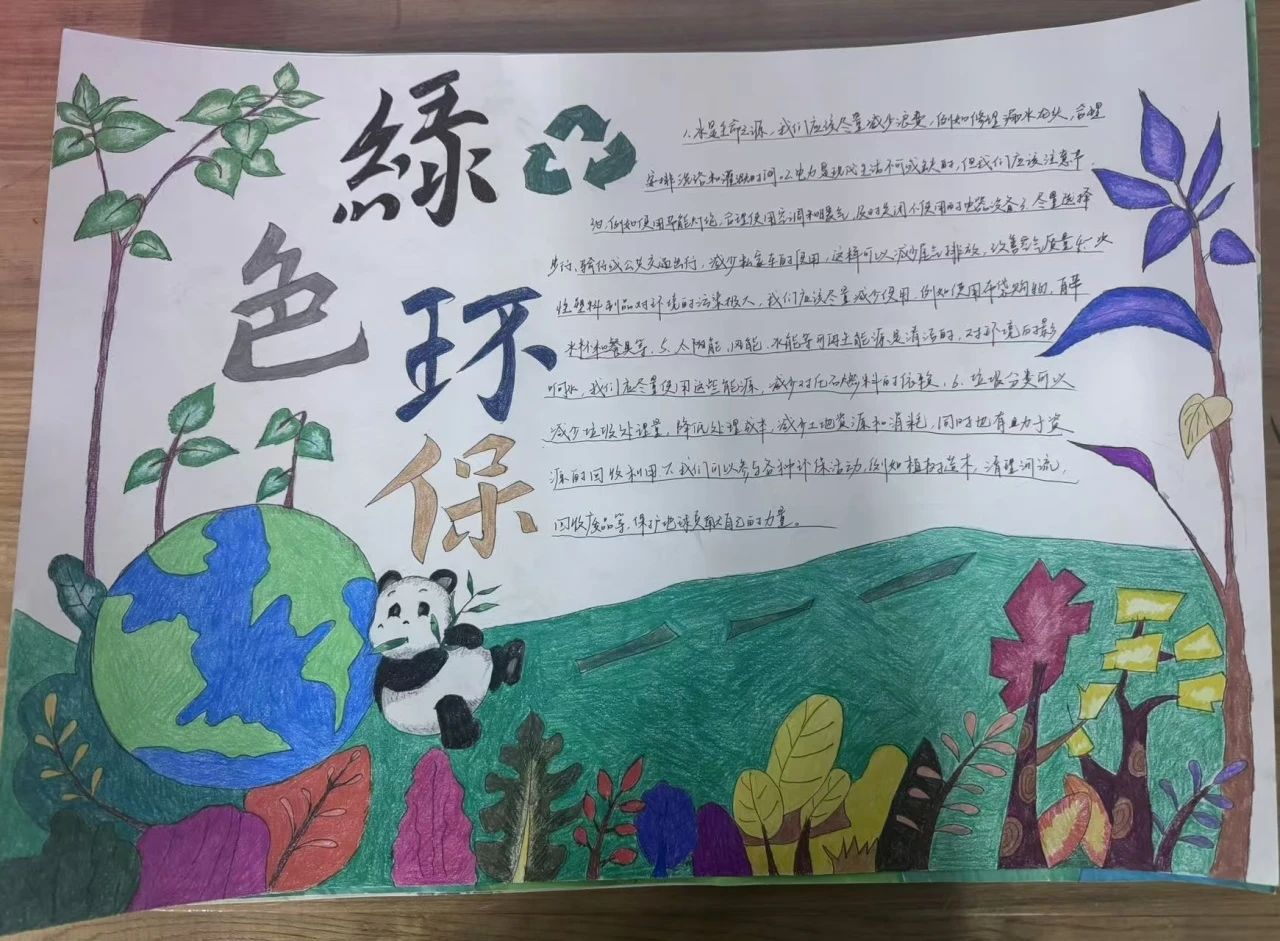 綠色环保
1.水是生命之源,我们应该尽量减少浪费,例如修理漏水龙头,合理
安排洗浴和灌溉时间。2.电力是现代生活不可或缺的,但我们应该注意节
约,例如使用节能灯泡,合理使用空调和暖气,及时关闭不使用的电器设备3.尽量选择
步行、骑行或公共交通出行,减少私家车的使用,这样可以减少尾气排放,改善空气质量4.一次
性塑料制品对环境的污染极大,我们应该尽量减少使用,例如使用布袋购物,自带
水杯和餐具等。5.太阳能,风能,水能等可再生能源是清洁的,对环境的影
响小,我们应尽量使用这些能源,减少对化石燃料的依赖。6.垃圾分类可以
减少垃圾处理量,降低处理成本,减少土地资源和消耗,同时也有助于资
源的回收利用.7.我们可以参与各种环保活动,例如植树造林,清理河流,
回收废品等,保护地球贡献自己的力量。